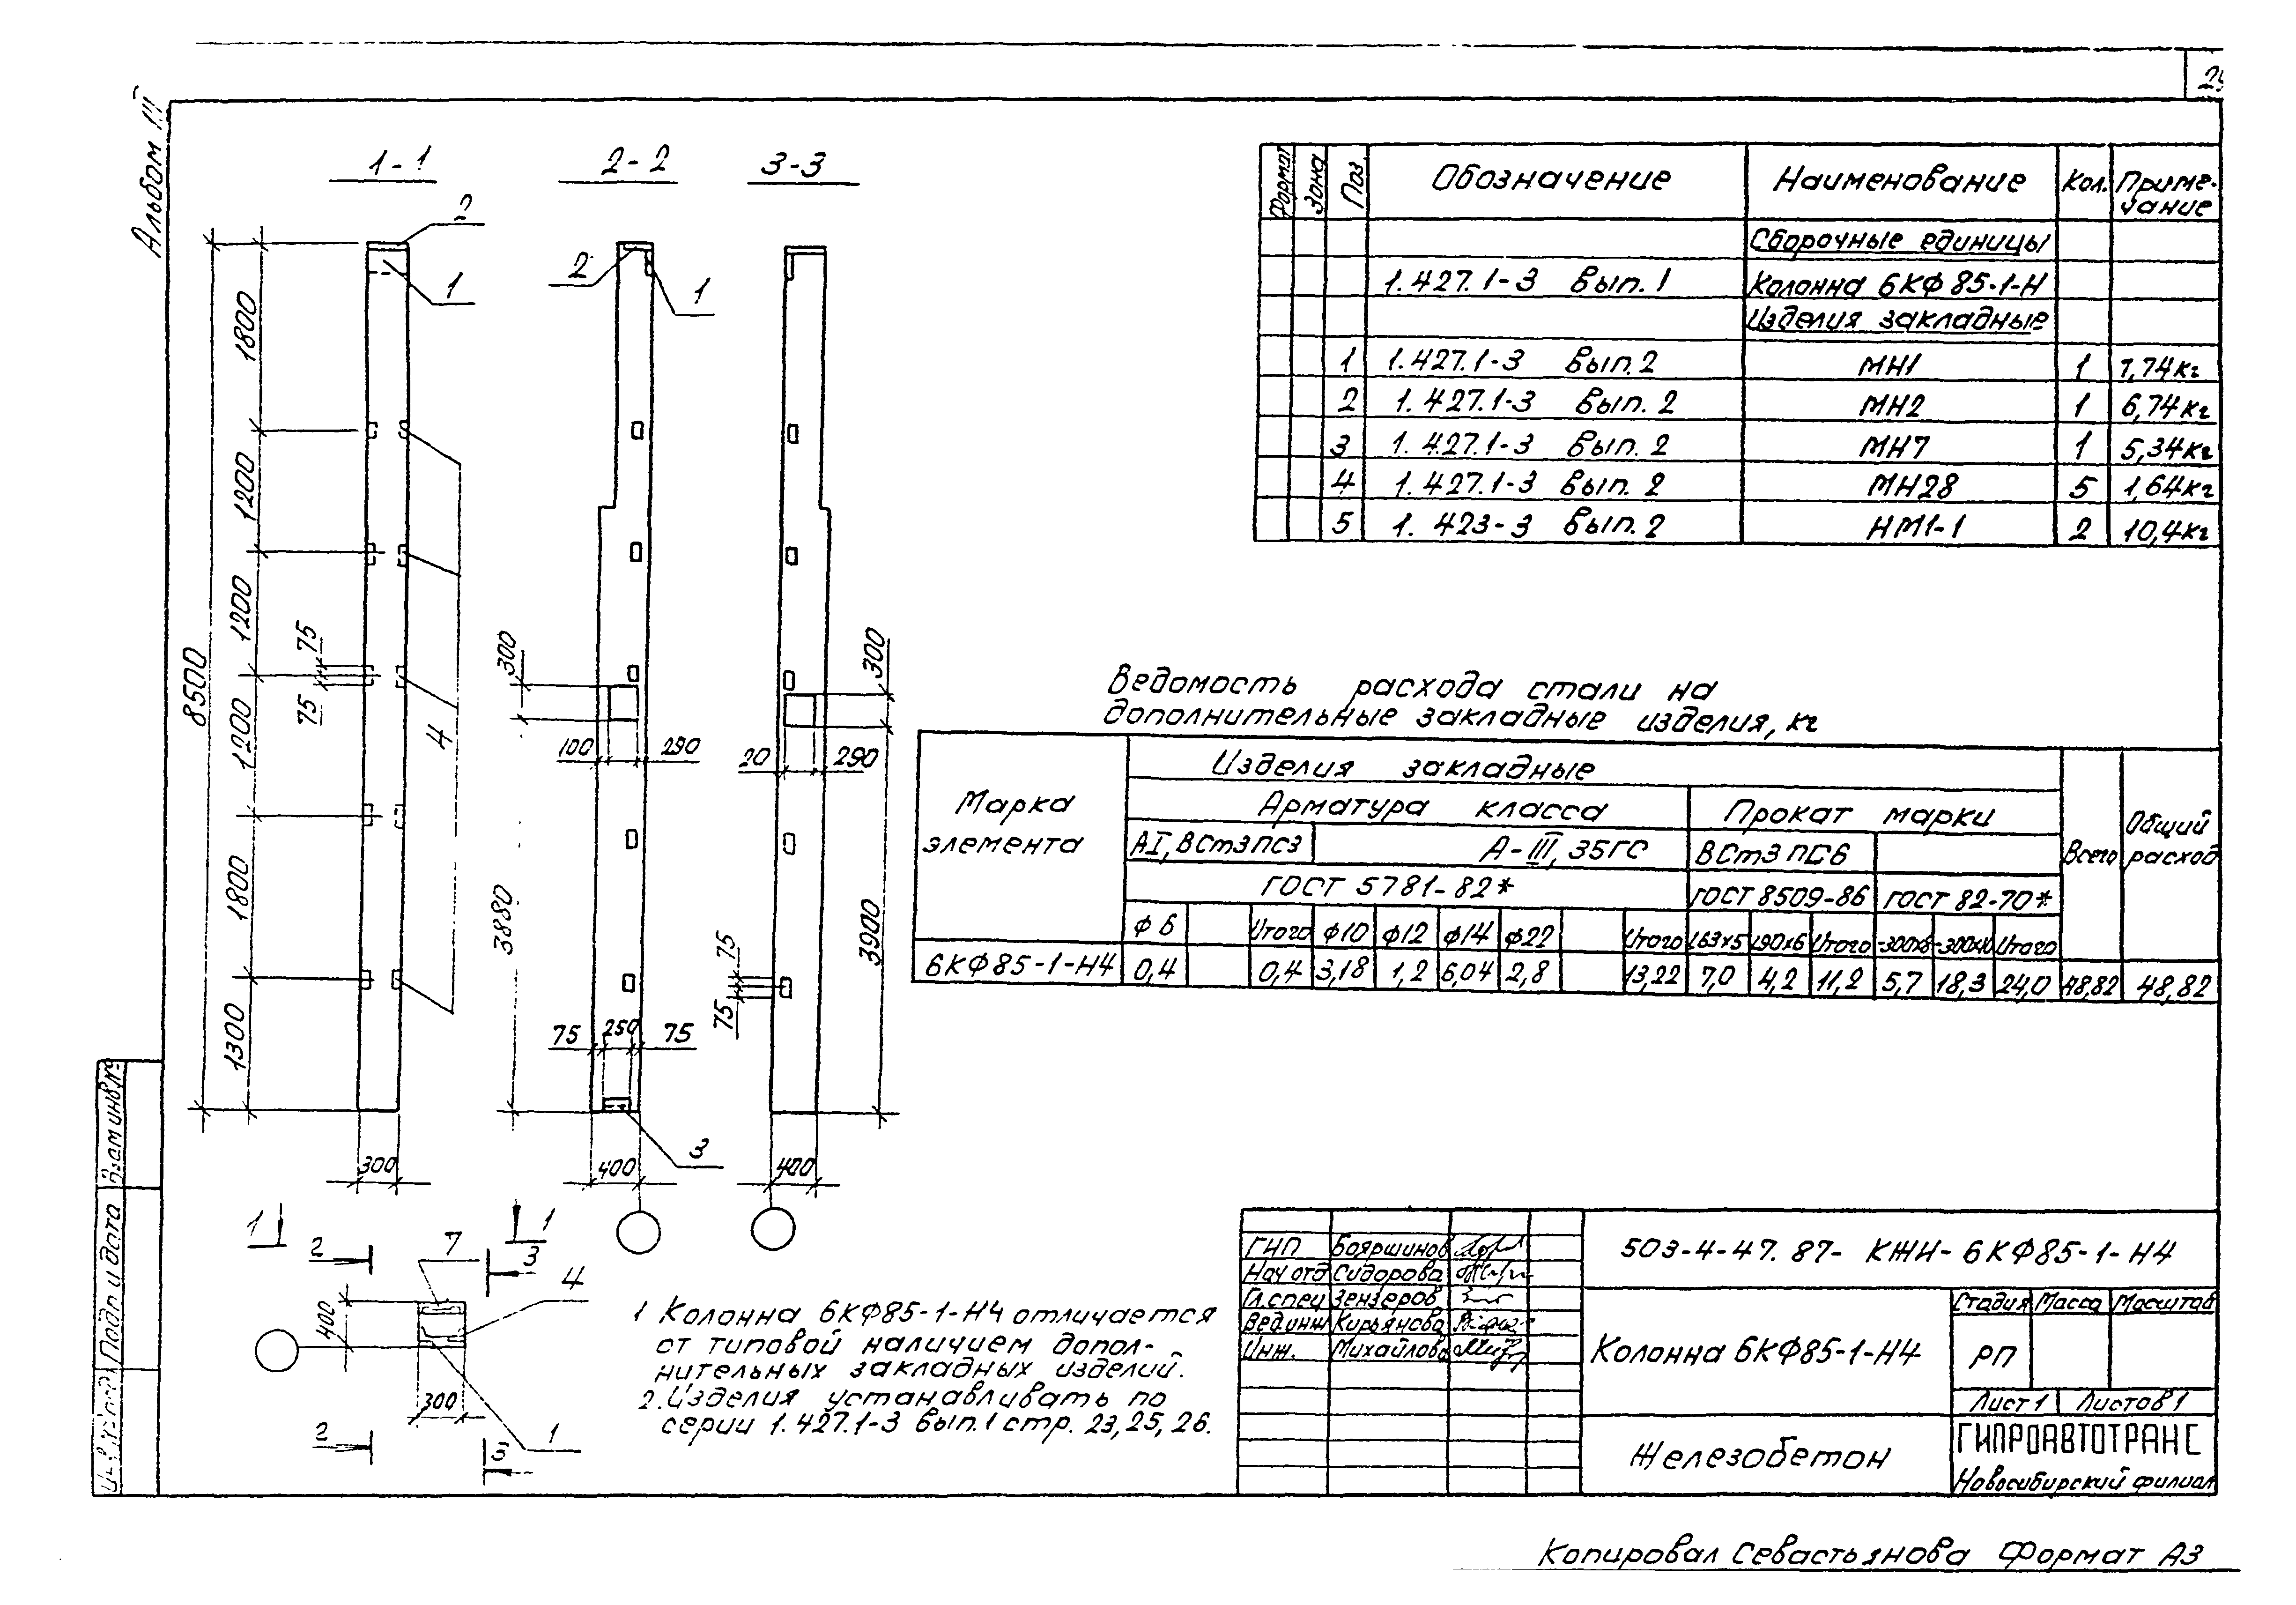 Альбом III
1-1
2-2
3-3
2
1
2
1
8500
1800
1200
1200
1200
1800
1300
75
75
4
300
100
290
3880
75
250
75
3
300
20
290
3900
75
75
300
400
400
1
1
2
3
7
4
400
300
1
2
3
Формат Зона Поз. Обозначение Наименование Кол. Приме-
чание
Сборочные единицы
1.427.1-3 Вып. 1 Колонна 6КФ85-1-Н
Изделия закладные
1 1.427.1-3 Вып. 2 МН1 1 7,74кг
2 1.427.1-3 Вып. 2 МН2 1 6,74кг
3 1.427.1-3 Вып. 2 МН7 1 5,34кг
4 1.427.1-3 Вып. 2 МН28 5 1,64кг
5 1.423-3 Вып. 2 НМ1-1 2 10,4кг
Ведомость расхода стали на
дополнительные закладные изделия, кг
Марка
элемента
Изделия закладные
Всего
Общий
расход
Арматура класса Прокат марки
АI, ВСт3пс3 А-III, 35ГС ВСт3пс6
ГОСТ 5781-82* ГОСТ 8509-86 ГОСТ 82-70*
ф6 Итого ф10 ф12 ф14 ф22 Итого L63х5 L90х6 Итого -300х8 -300х10 Итого
6КФ85-1-Н4 0,4 0,4 3,18 1,2 6,04 2,8 13,22 7,0 4,2 11,2 5,7 18,3 24,0 48,82 48,82
1 Колонна 6КФ85-1-Н4 отличается
от типовой наличием допол-
нительных закладных изделий.
2. Изделия устанавливать по
серии 1.427.1-3 Вып.1 стр. 23, 25, 26.
ГИП Бояршинов
Нач отд Сидорова
Гл.спец Зензеров
Вед инж Кирьянова
Инж. Михайлова
503-4-47.87- КЖИ- 6КФ85-1-Н4
Колонна 6КФ85-1-Н4
Стадия Масса Масштаб
РП
Лист 1 Листов 1
Железобетон
ГИПРОАВТОТРАНС
Новосибирский филиал
Взам инв №
Подп и дата
Копировал Севастьянова Формат А3